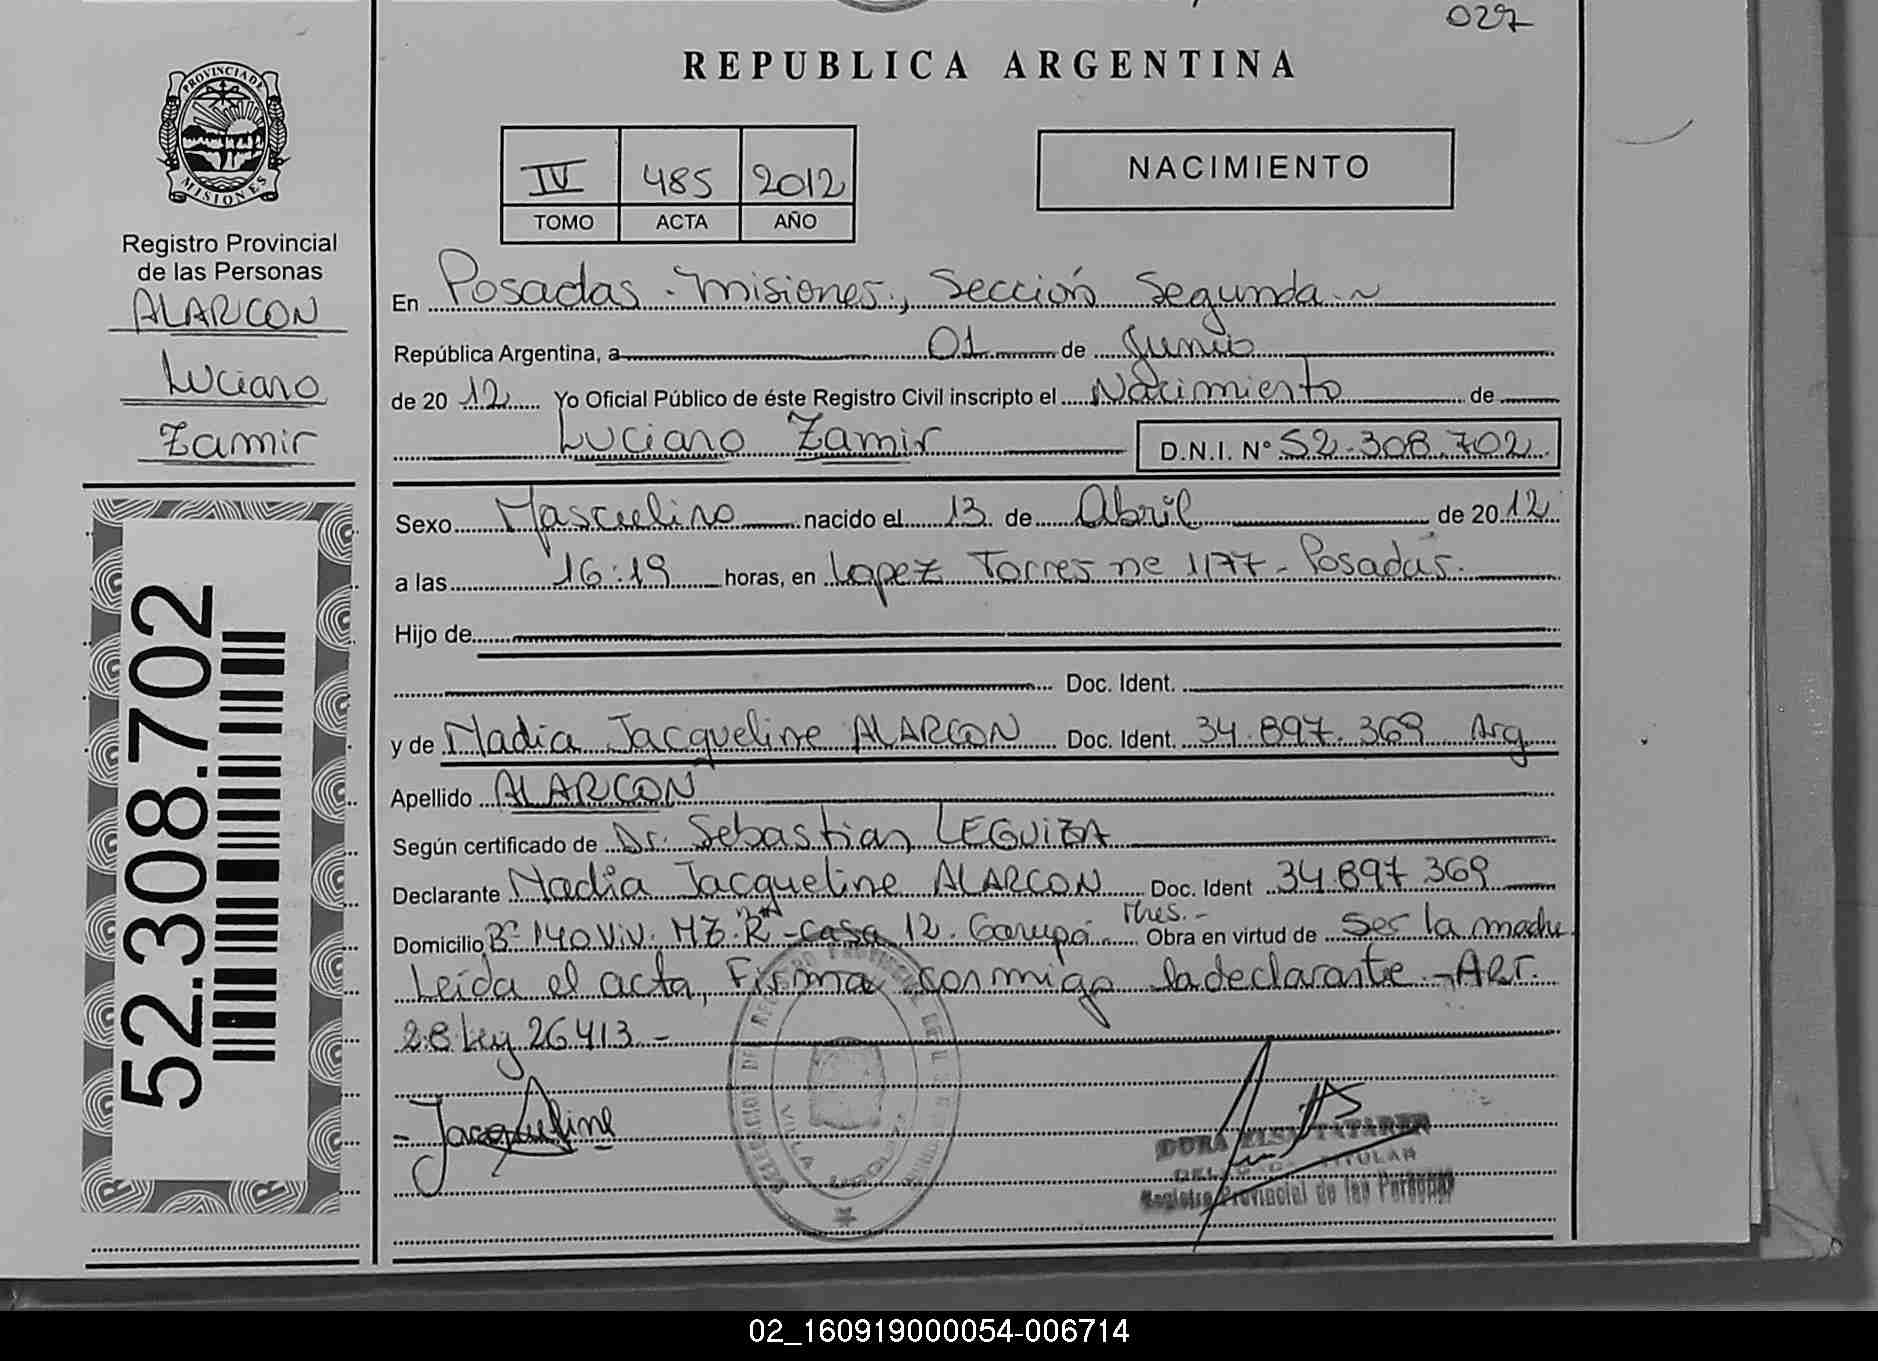 027
REPUBLICA ARGENTINA
PROVINCIA DE MISIONES
Registro Provincial
de las Personas
ALARCON
Luciano
Zamir
52.308.702
IV 485 2012
TOMO ACTA AÑO
NACIMIENTO
En Posadas - Misiones, Sección Segunda
República Argentina, a 01 de Junio
de 20 12 Yo Oficial Público de éste Registro Civil inscripto el Nacimiento de
Luciano Zamir D.N.I. N° 52.308.702
Sexo Masculino nacido el 13 de Abril de 20 12
a las 16:19 horas, en Lopez Torres ne 1177 - Posadas.
Hijo de
Doc. Ident.
y de Nadia Jacqueline ALARCON Doc. Ident. 34.897.369 Arg
Apellido ALARCON
Según certificado de Dr. Sebastian LEGUIZA
Declarante Nadia Jacqueline ALARCON Doc. Ident 34.897 369
Domicilio B° 140 Viv. MZ. R - Casa 12. Garupá Mnes.- Obra en virtud de Ser la madre
Leída el acta, Firma conmigo la declarante - ART.
28 Ley 26413 -
Jacqueline
VILLA
TITULAR
Registro Provincial de las Personas
02_160919000054-006714